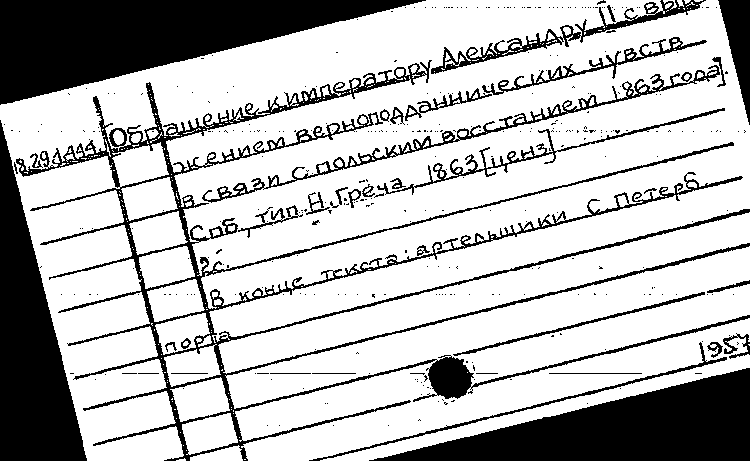 18.29.1.444. [Обращение к императору Александру II с выра-
жением верноподданнических чувств
в связи с польским восстанием 1863 года].
Спб., тип. Н. Греча, 1863 [ценз]
2с.
В конце текста: артельщики С. Петерб.
порта
1957